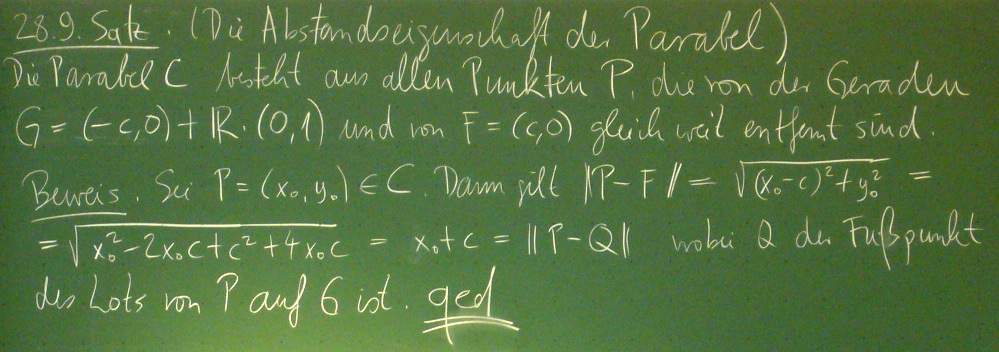 28.9. Satz. (Die Abstandseigenschaft der Parabel)
Die Parabel C besteht aus allen Punkten P, die von der Geraden
G = (-c,0) + ℝ·(0,1) und von F = (c,0) gleich weit entfernt sind.
Beweis. Sei P = (x₀,y₀) ∈ C. Dann gilt ‖P-F‖ = √((x₀-c)²+y₀²) =
= √(x₀²-2x₀c+c²+4x₀c) = x₀+c = ‖P-Q‖ wobei Q der Fußpunkt
des Lots von P auf G ist. qed